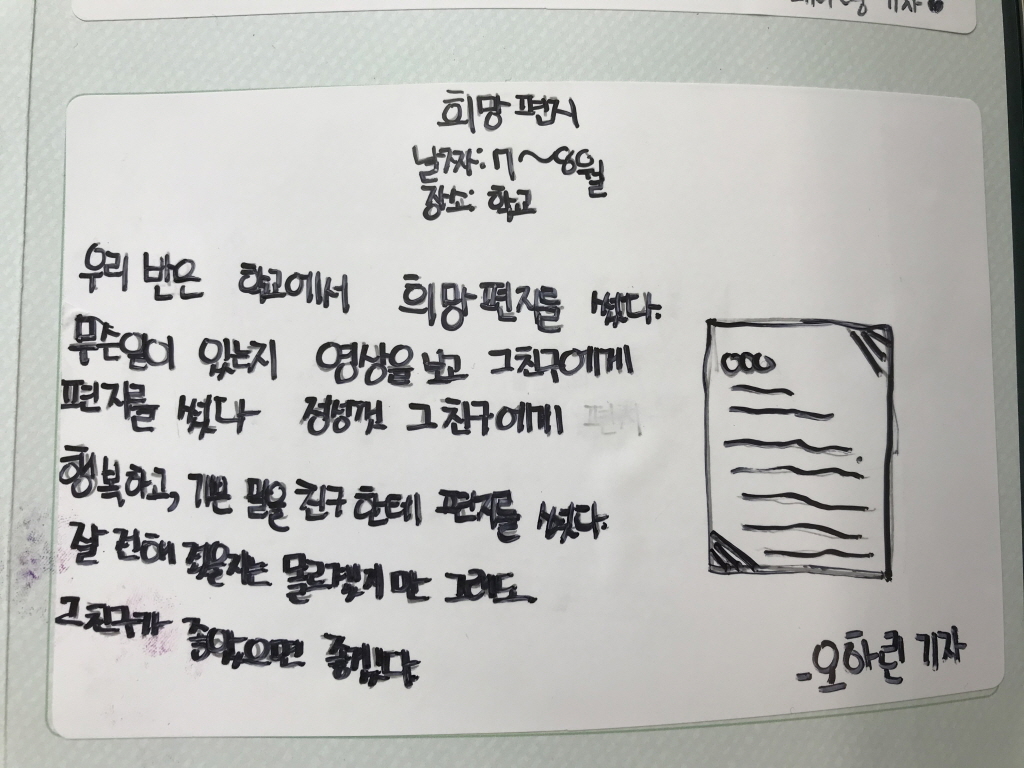 기자
희망 편지
날짜: 7~8월
장소: 학교
우리 반은 학교에서 희망 편지를 썼다.
무슨일이 있는지 영상을 보고 그친구에게
편지를 썼다 정성껏 그친구에게 편지
행복하고, 기쁜 말을 친구한테 편지를 썼다.
잘 전해 졌을지는 모르겠지만 그래도
그친구가 좋았으면 좋겠다.
-오하린 기자